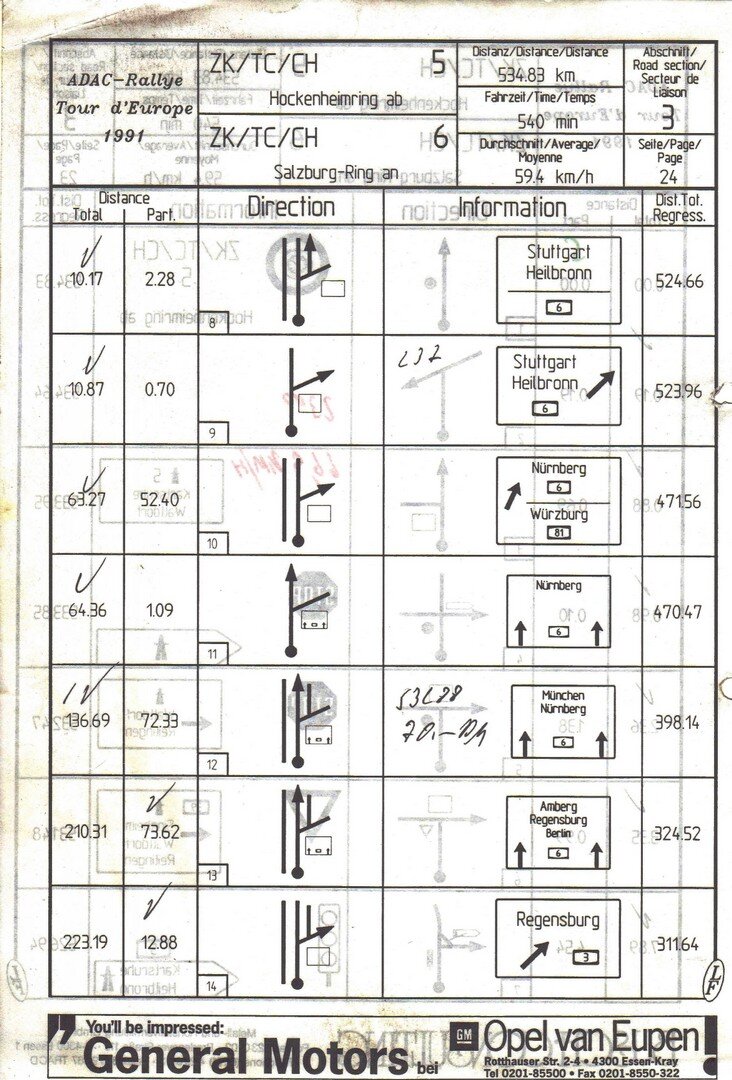 ADAC-Rallye
Tour d'Europe
1991
ZK/TC/CH 5
Hockenheimring ab
ZK/TC/CH 6
Salzburg-Ring an
Distanz/Distance/Distance
534.83 km
Fahrzeit/Time/Temps
540 min
Durchschnitt/Average/
Moyenne
59.4 km/h
Abschnitt/
Road section/
Secteur de
Liaison
3
Seite/Page/
Page
24
Distance
Total Part.
Direction
Information
Dist.Tot.
Regress.
10.17 2.28
8
Stuttgart
Heilbronn
6
524.66
10.87 0.70
9
Stuttgart
Heilbronn
6
523.96
63.27 52.40
10
Nürnberg
6
Würzburg
81
471.56
64.36 1.09
11
Nürnberg
6
470.47
136.69 72.33
12
München
Nürnberg
6
398.14
210.31 73.62
13
Amberg
Regensburg
Berlin
6
324.52
223.19 12.88
14
Regensburg
3
311.64
LF
LF
You'll be impressed:
General Motors bei
GM Opel van Eupen!
Rotthauser Str. 2-4 • 4300 Essen-Kray
Tel 0201-85500 • Fax 0201-8550-322